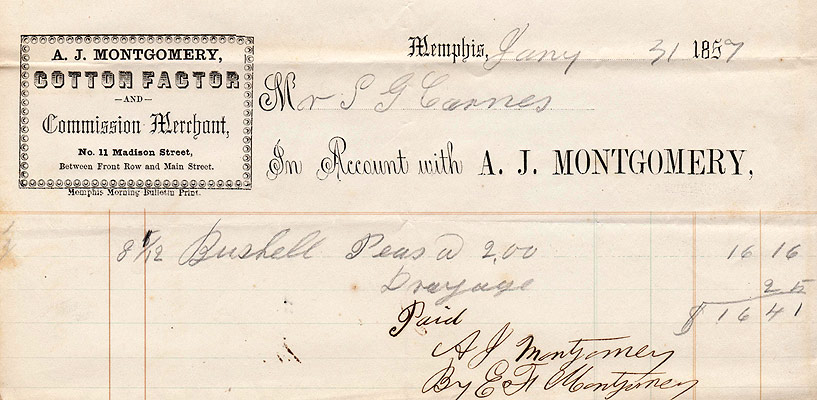 Memphis, Jany 31 1857
A. J. MONTGOMERY,
COTTON FACTOR
—AND—
Commission Merchant,
No. 11 Madison Street,
Between Front Row and Main Street.
Memphis Morning Bulletin Print.
Mr S G Carnes
In Account with A. J. MONTGOMERY,
8 1/12 Bushell Peas @ 2,00 16 16
Drayage 25
$ 16 41
Paid
A J Montgomery
By E F Montgomery